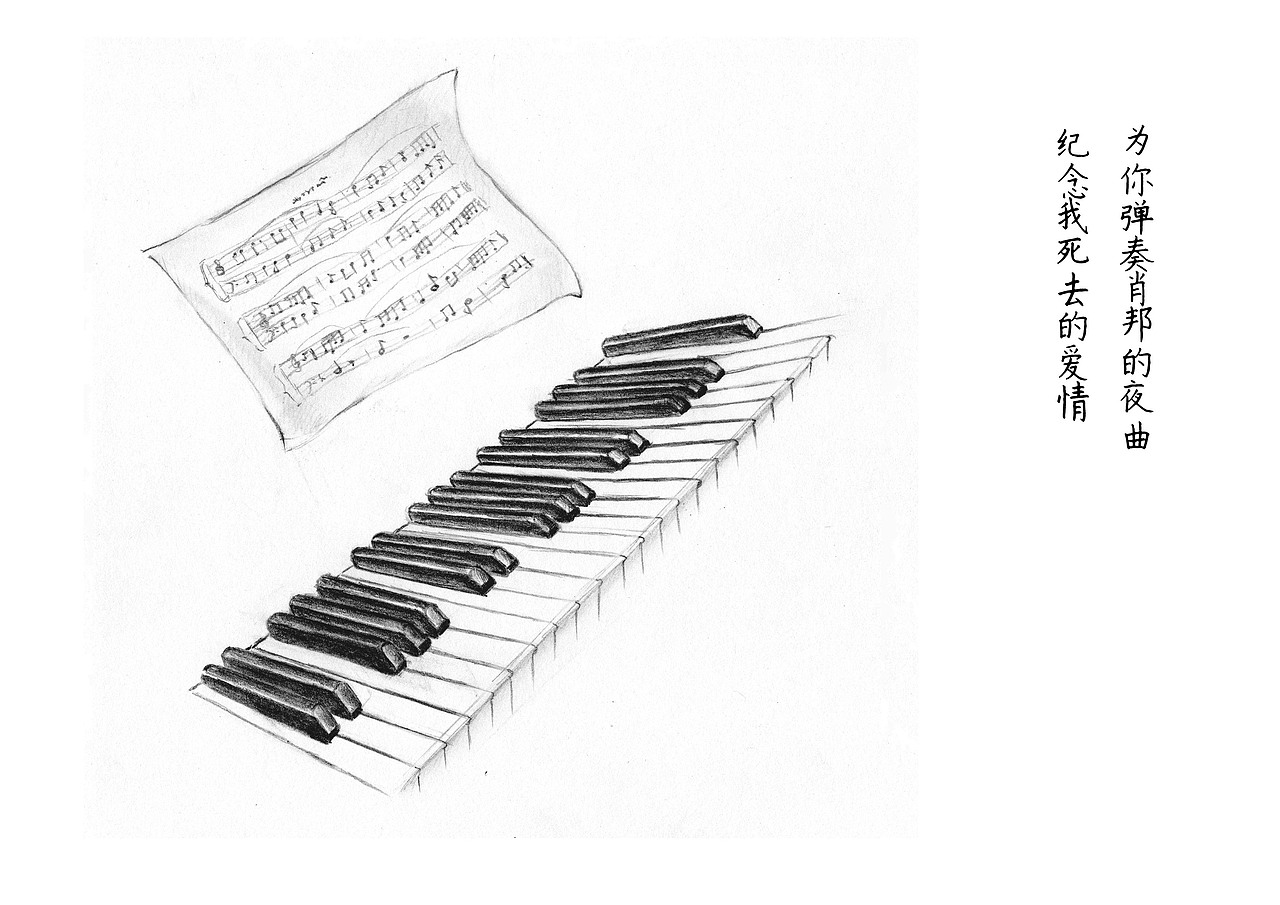 为你弹奏肖邦的夜曲
纪念我死去的爱情